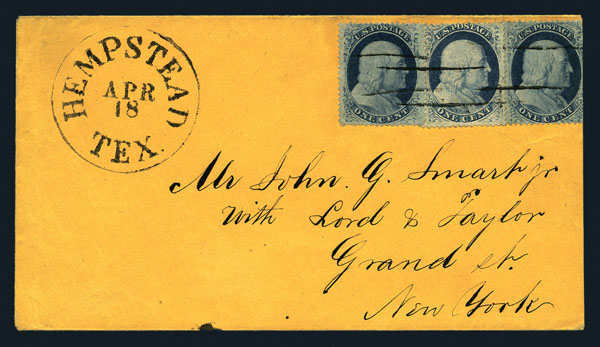 HEMPSTEAD
APR
18
TEX.
U.S. POSTAGE
ONE CENT
U.S. POSTAGE
ONE CENT
U.S. POSTAGE
ONE CENT
Mr John. G. Smart jr
With Lord & Taylor
Grand st.
New York